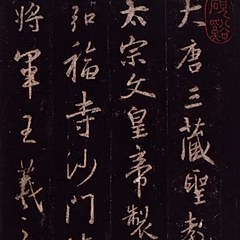 大唐三藏聖教
太宗文皇帝製
弘福寺沙門
將軍王羲之